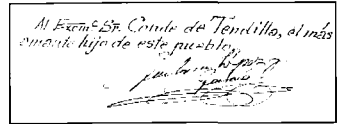 Al Excmº Sr. Conde de Tendilla, el más
amante hijo de este pueblo,